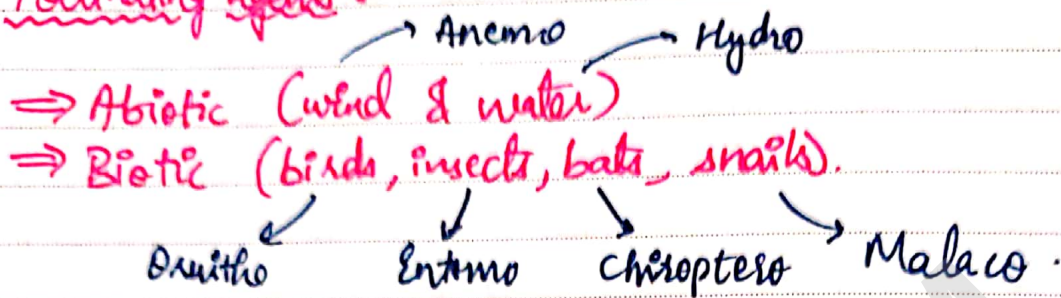 Anemo Hydro
⇒ Abiotic (wind & water)
⇒ Biotic (birds, insects, bats, snails).
Ornitho Entomo Chiroptero Malaco.